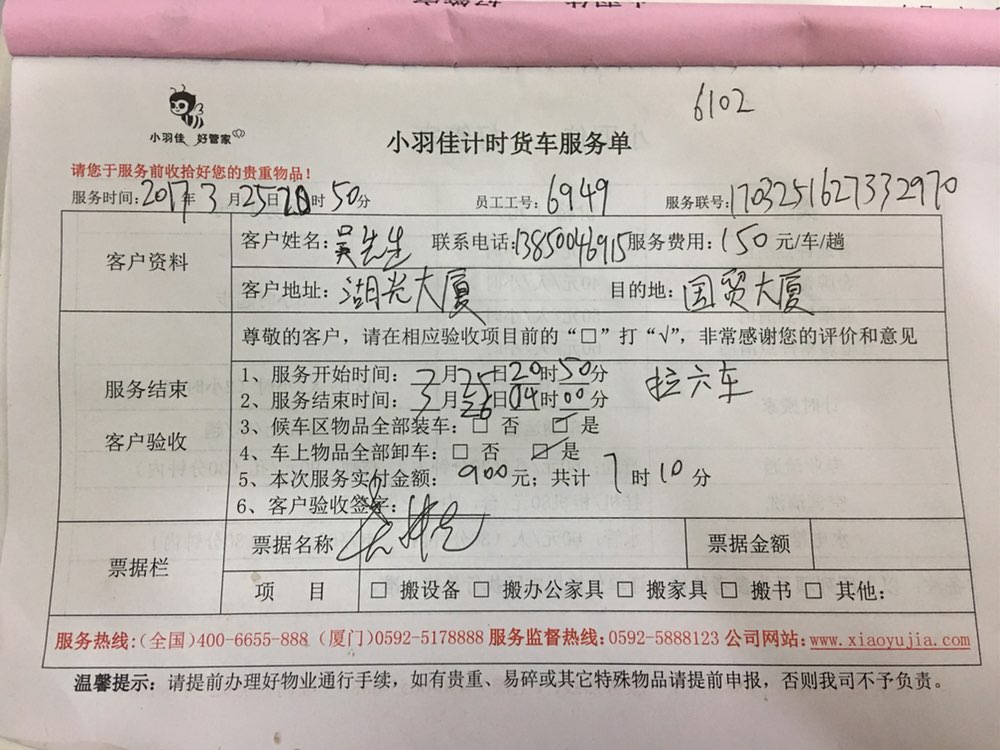 6102
小羽佳 好管家
小羽佳计时货车服务单
请您于服务前收拾好您的贵重物品!
服务时间:2017年3月25日20时50分 员工工号:6949 服务联号:1703251627332970
客户资料
客户姓名:吴先生 联系电话:13850046915 服务费用:150元/车/趟
客户地址:湖光大厦 目的地:国贸大厦
服务结束
客户验收
尊敬的客户，请在相应验收项目前的“□”打“√”，非常感谢您的评价和意见
1、服务开始时间:3月25日20时50分 拉六车
2、服务结束时间:3月26日04时00分
3、候车区物品全部装车:□ 否 □ 是
4、车上物品全部卸车:□ 否 ☑ 是
5、本次服务实付金额: 900元;共计7时10分
6、客户验收签字:
票据栏
票据名称 票据金额
项 目 □ 搬设备 □ 搬办公家具 □ 搬家具 □ 搬书 □ 其他:
服务热线:(全国)400-6655-888 (厦门)0592-5178888 服务监督热线:0592-5888123 公司网站:www.xiaoyujia.com
温馨提示: 请提前办理好物业通行手续，如有贵重、易碎或其它特殊物品请提前申报，否则我司不予负责。